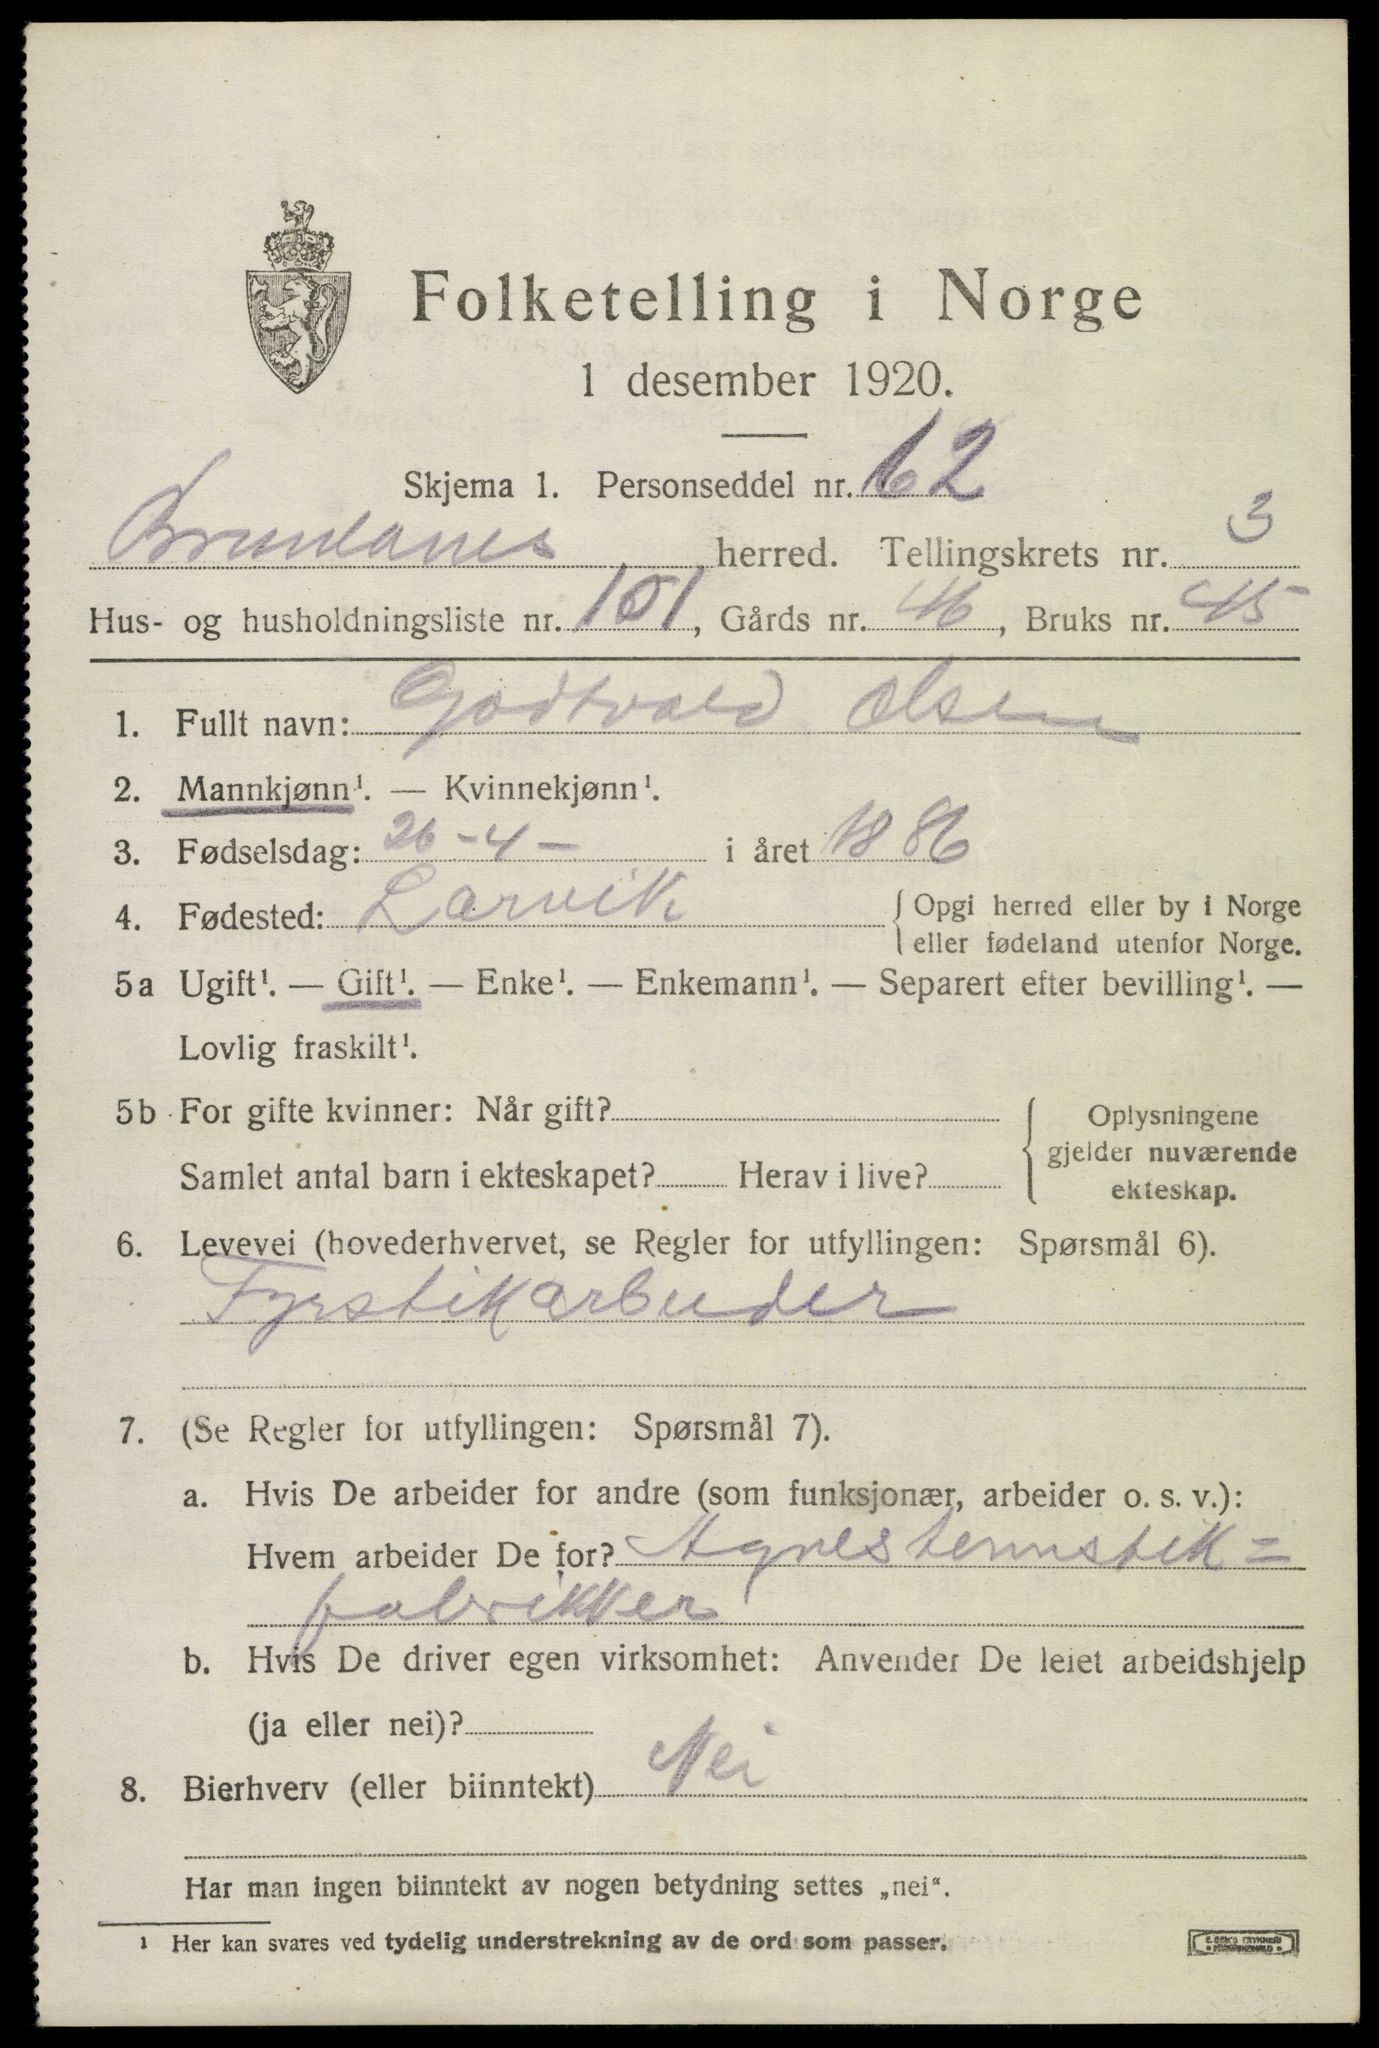 Folketelling i Norge
1 desember 1920.
Skjema 1. Personseddel nr. 62
Brunlanes herred. Tellingskrets nr. 3
Hus- og husholdningsliste nr. 101, Gårds nr. 46, Bruks nr. 45
1. Fullt navn: Godtvald Olsen
2. Mannkjønn¹. — Kvinnekjønn¹.
3. Fødselsdag: 26-4- i året 1886
4. Fødested: Larvik { Opgi herred eller by i Norge
eller fødeland utenfor Norge.
5a Ugift¹. — Gift¹. — Enke¹. — Enkemann¹. — Separert efter bevilling¹. —
Lovlig fraskilt¹.
5b For gifte kvinner: Når gift? { Oplysningene
gjelder nuværende
Samlet antal barn i ekteskapet? Herav i live?
ekteskap.
6. Levevei (hovederhvervet, se Regler for utfyllingen: Spørsmål 6).
Fyrstikarbeider
7. (Se Regler for utfyllingen: Spørsmål 7).
a. Hvis De arbeider for andre (som funksjonær, arbeider o. s. v.):
Hvem arbeider De for? Agnes tennstik=
fabrikker
b. Hvis De driver egen virksomhet: Anvender De leiet arbeidshjelp
(ja eller nei)?
8. Bierhverv (eller biinntekt) Nei
Har man ingen biinntekt av nogen betydning settes „nei“.
¹ Her kan svares ved tydelig understrekning av de ord som passer.